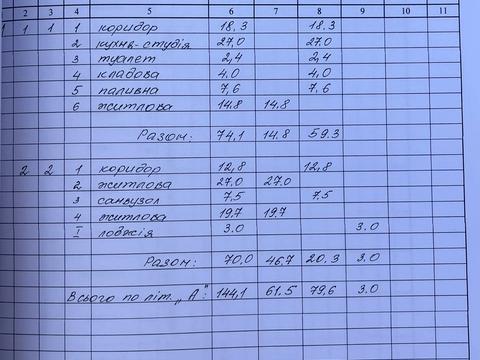 2 3 4 5 6 7 8 9 10 11
1 1 1 1 коридор 18.3 18.3
2 кухня-студія 27,0 27.0
3 туалет 2,4 2,4
4 кладова 4,0 4,0
5 паливна 7,6 7,6
6 житлова 14.8 14,8
Разом: 74,1 14.8 59.3
2 2 1 коридор 12,8 12,8
2 житлова 27.0 27.0
3 санвузол 7,5 7,5
4 житлова 19,7 19,7
I лоджія 3.0 3.0
Разом: 70,0 46,7 20,3 3,0
Всього по літ. „А": 144,1 61.5 79,6 3.0